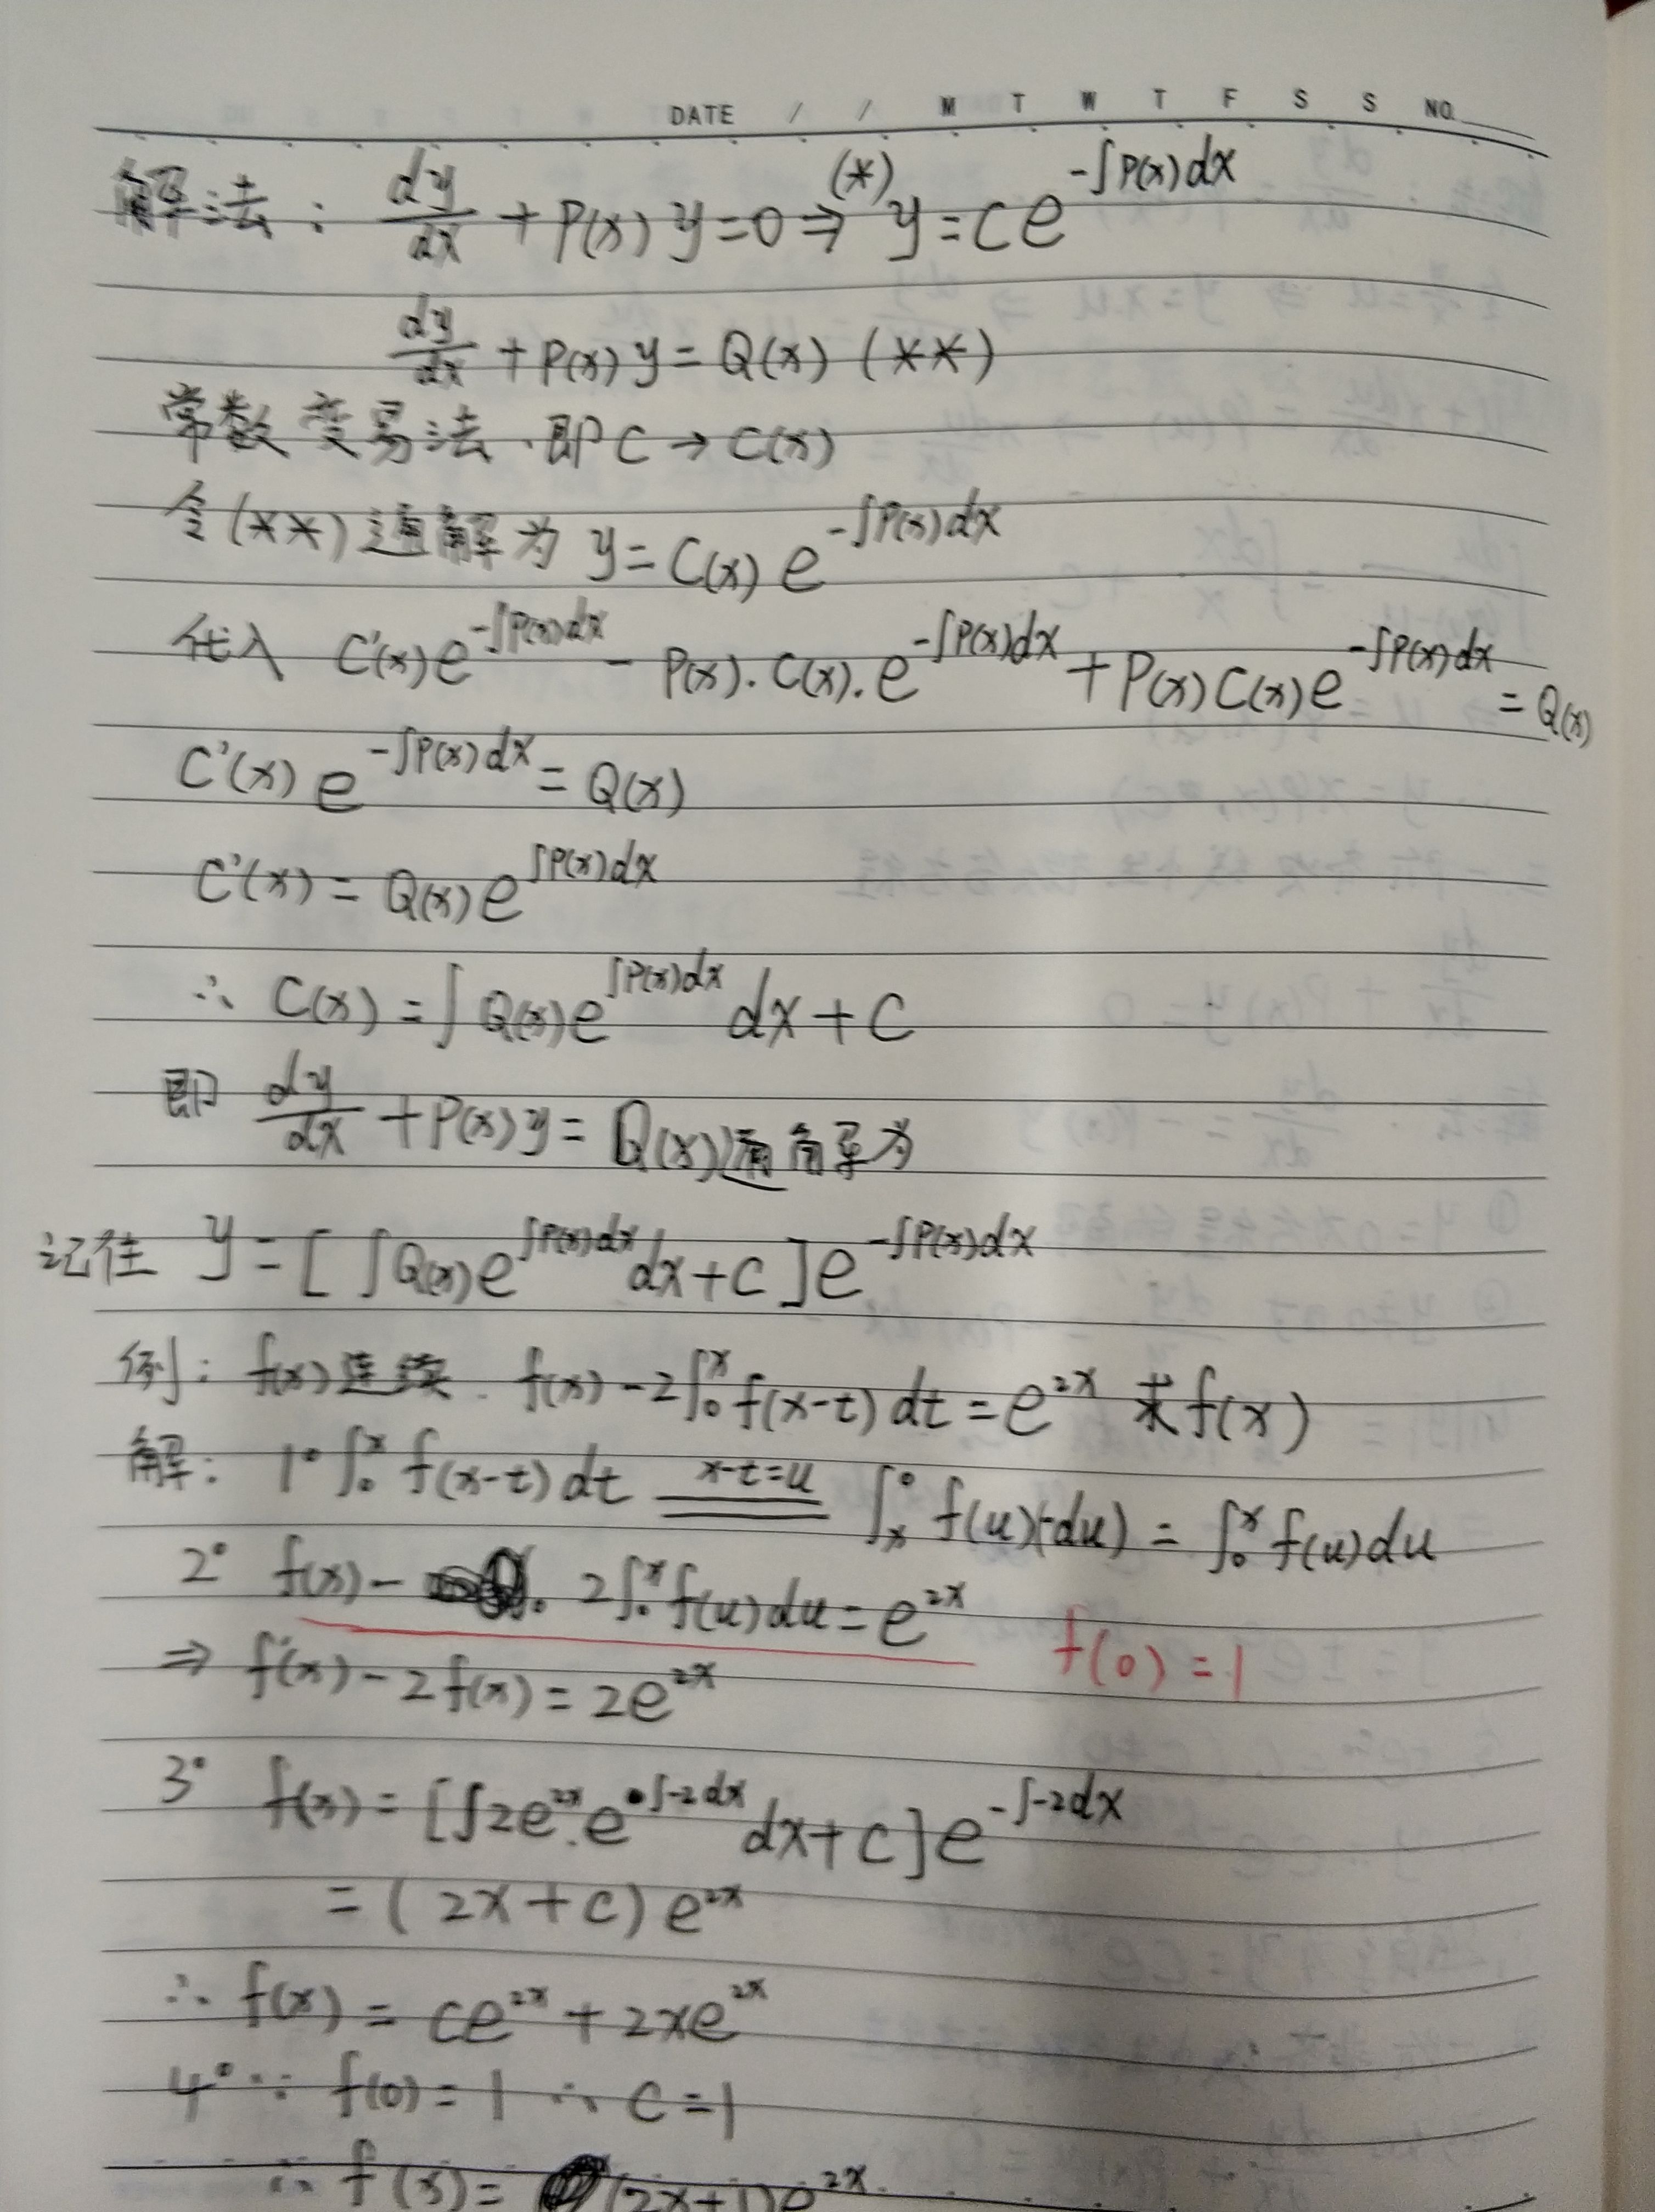 DATE / / M T W T F S S NO.
解法: dy/dx + P(x) y = 0 ⇒ (*) y = C e^{-∫P(x)dx}
dy/dx + P(x) y = Q(x) (**)
常数变易法.即 C → C(x)
令(**)通解为 y = C(x) e^{-∫P(x)dx}
代入 C'(x)e^{-∫P(x)dx} - P(x)·C(x)·e^{-∫P(x)dx} + P(x)C(x)e^{-∫P(x)dx} = Q(x)
C'(x) e^{-∫P(x)dx} = Q(x)
C'(x) = Q(x)e^{∫P(x)dx}
∴ C(x) = ∫Q(x)e^{∫P(x)dx} dx + C
即 dy/dx + P(x)y = Q(x)通解为
记住 y = [∫Q(x)e^{∫P(x)dx}dx + C]e^{-∫P(x)dx}
例: f(x)连续. f(x) - 2∫₀ˣ f(x-t) dt = e^{2x} 求f(x)
解: 1° ∫₀ˣ f(x-t) dt ==(x-t=u)== ∫ₓ⁰ f(u)(-du) = ∫₀ˣ f(u)du
2° f(x) - 2∫₀ˣ f(u)du = e^{2x} f(0)=1
⇒ f'(x) - 2f(x) = 2e^{2x}
3° f(x) = [∫2e^{2x}·e^{∫-2dx} dx + C]e^{-∫-2dx}
= (2x+C) e^{2x}
∴ f(x) = Ce^{2x} + 2xe^{2x}
4° ∵ f(0)=1 ∴ C=1
∴ f(x) = (2x+1)e^{2x}.